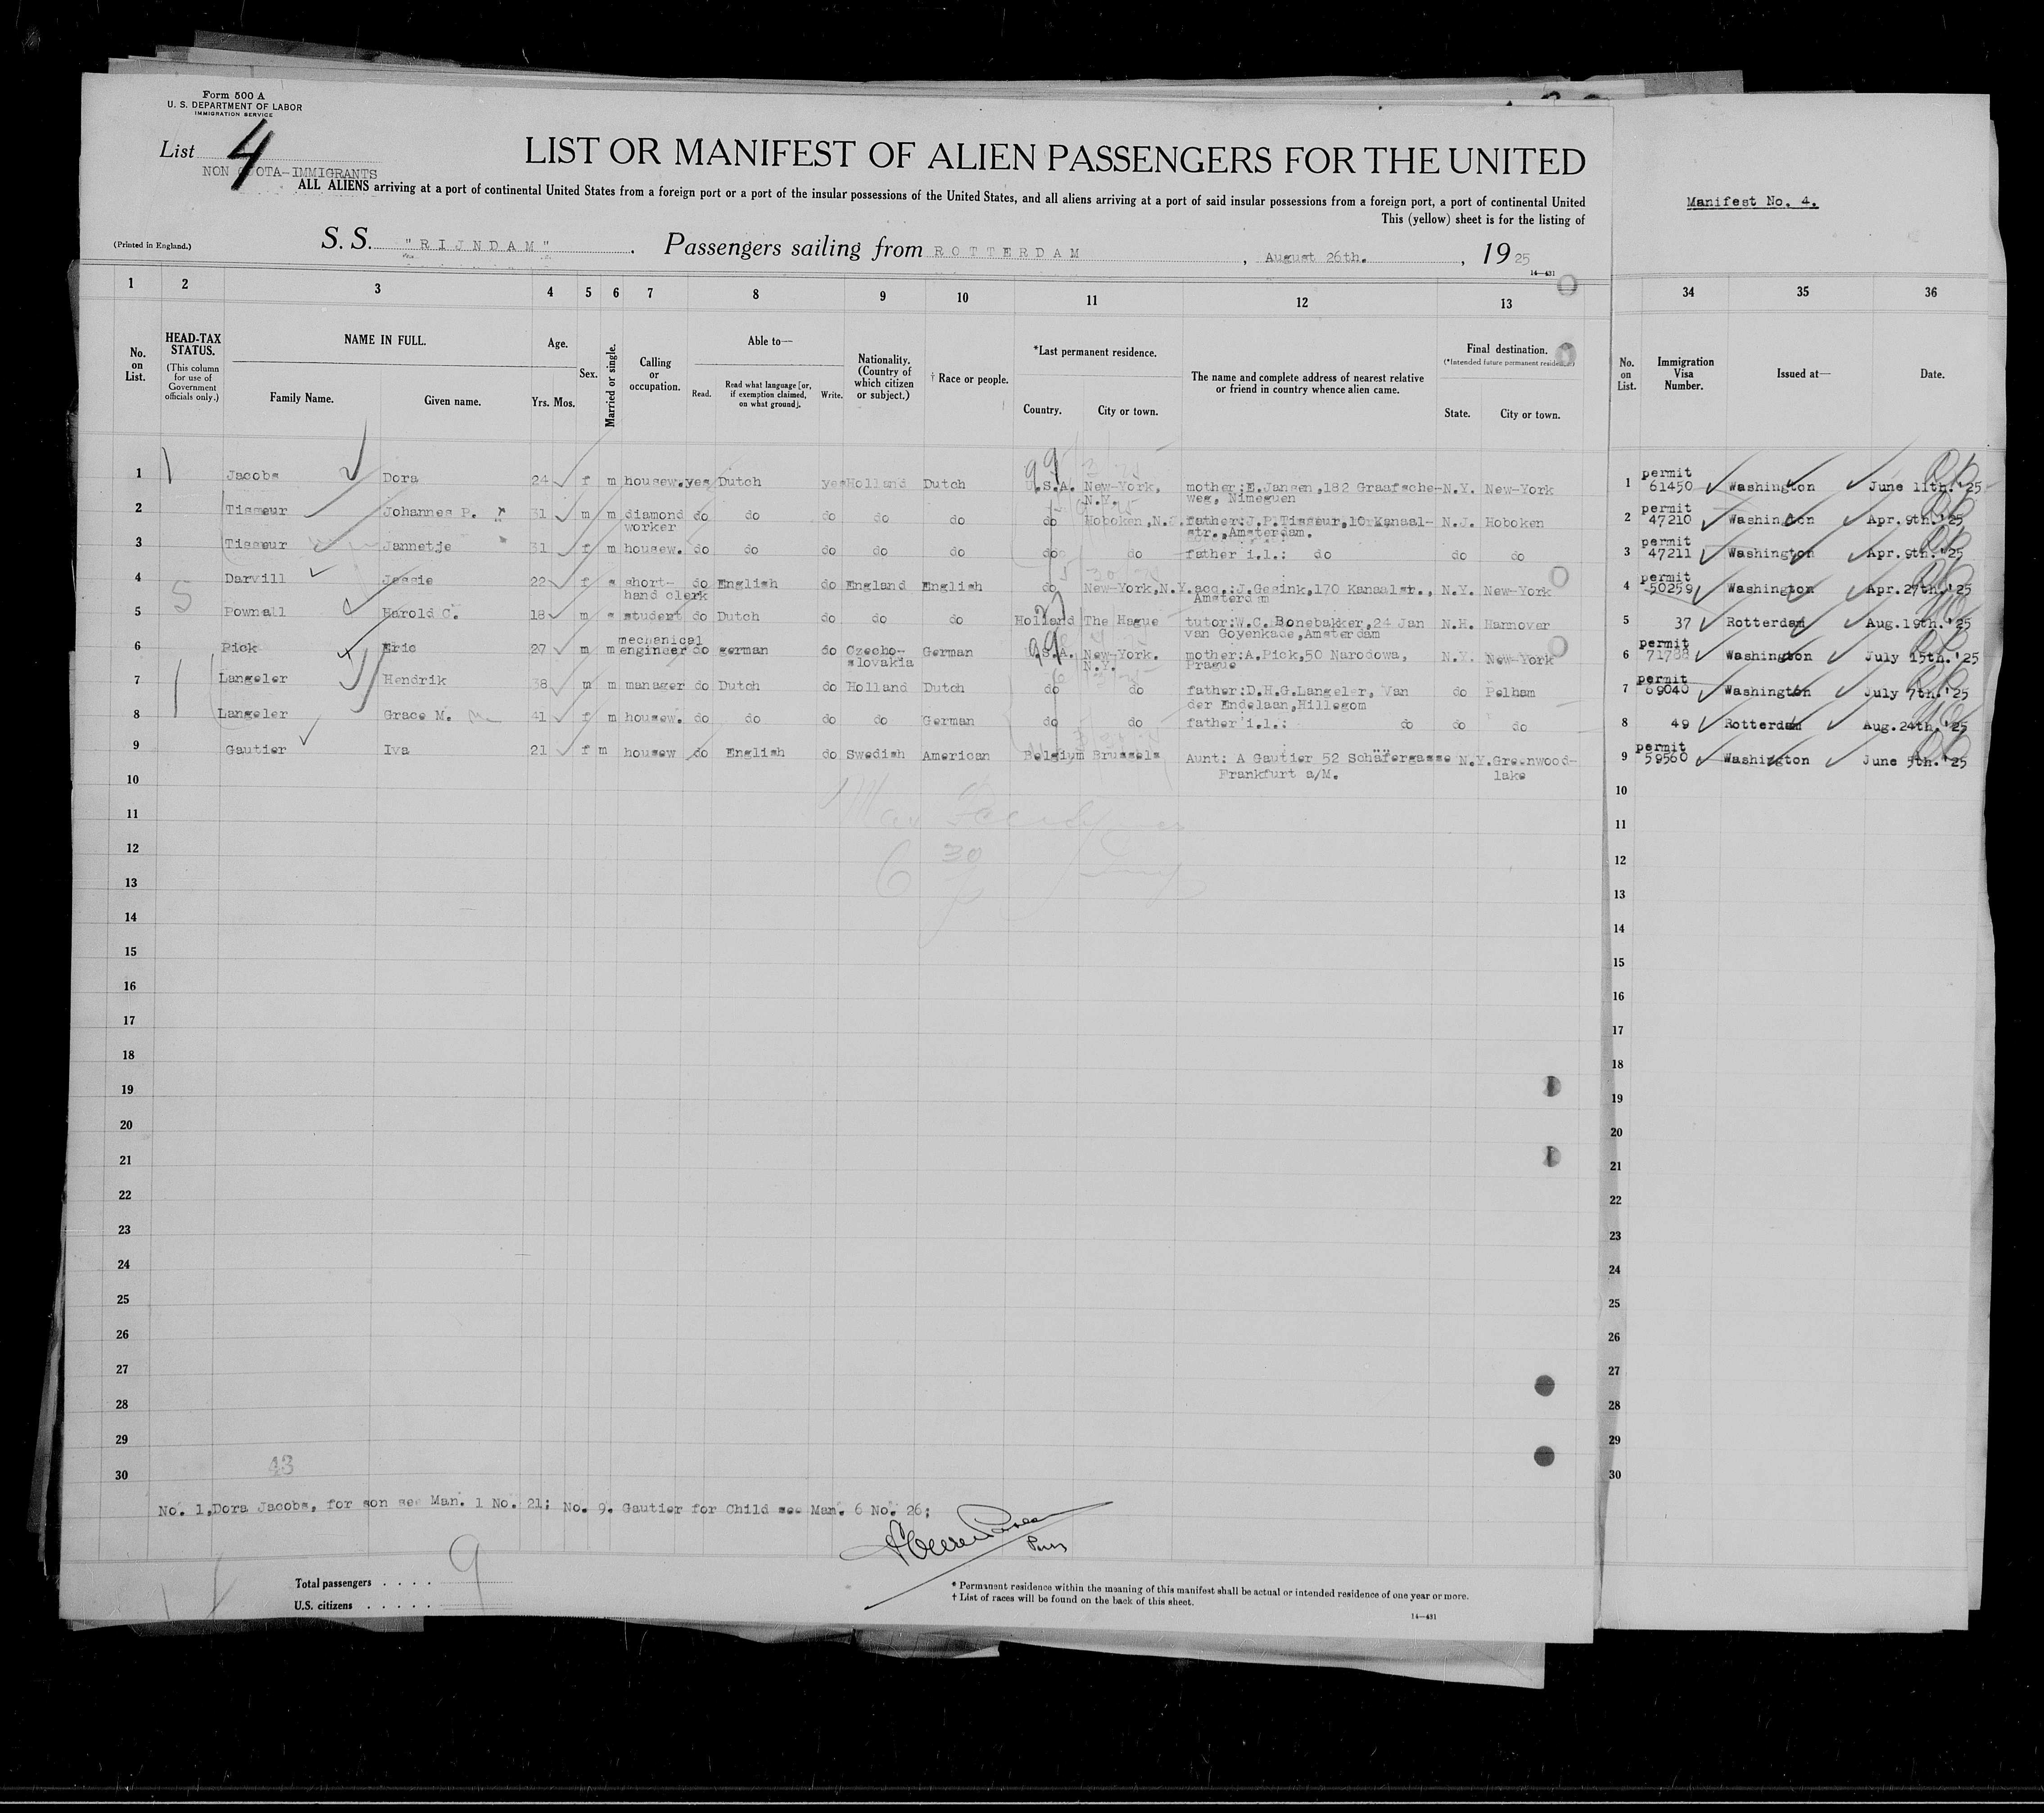 Form 500 A
U. S. DEPARTMENT OF LABOR
IMMIGRATION SERVICE
List 4
NON QUOTA-IMMIGRANTS
LIST OR MANIFEST OF ALIEN PASSENGERS FOR THE UNITED
ALL ALIENS arriving at a port of continental United States from a foreign port or a port of the insular possessions of the United States, and all aliens arriving at a port of said insular possessions from a foreign port, a port of continental United
This (yellow) sheet is for the listing of
Manifest No. 4.
(Printed in England.)
S. S. "RIJNDAM". Passengers sailing from ROTTERDAM, August 26th., 1925
14—431
1 2 3 4 5 6 7 8 9 10 11 12 13 34 35 36
No. on List.
HEAD-TAX STATUS.
(This column for use of Government officials only.)
NAME IN FULL.
Family Name. Given name.
Age.
Yrs. Mos.
Sex.
Married or single.
Calling or occupation.
Able to—
Read. Read what language [or, if exemption claimed, on what ground]. Write.
Nationality. (Country of which citizen or subject.)
† Race or people.
*Last permanent residence.
Country. City or town.
The name and complete address of nearest relative or friend in country whence alien came.
Final destination.
(*Intended future permanent residence.)
State. City or town.
No. on List.
Immigration Visa Number.
Issued at—
Date.
1 Jacobs Dora 24 f m housew. yes Dutch yes Holland Dutch U.S.A. New-York, N.Y. mother:E.Jansen,182 Graafsche-weg, Nimeguen N.Y. New-York 1 permit 61450 Washington June 11th.'25
2 Tisseur Johannes P. 31 m m diamond worker do do do do do do Hoboken,N.J. father:J.P.Tisseur,10 Kanaal-str.,Amsterdam. N.J. Hoboken 2 permit 47210 Washington Apr. 9th.'25
3 Tisseur Jannetje 31 f m housew. do do do do do do do father i.l.: do do do 3 permit 47211 Washington Apr. 9th.'25
4 Darvill Jessie 22 f s short-hand clerk do English do England English do New-York,N.Y. acq.:J.Gesink,170 Kanaalstr., Amsterdam N.Y. New-York 4 permit 50259 Washington Apr. 27th.'25
5 Pownall Harold C. 18 m s student do Dutch do do do Holland The Hague tutor:W.C. Bonebakker,24 Jan van Goyenkade,Amsterdam N.H. Hannover 5 37 Rotterdam Aug. 19th.'25
6 Pick Eric 27 m m mechanical engineer do german do Czecho-slovakia German U.S.A. New-York. N.Y. mother:A.Pick,50 Narodowa, Prague N.Y. New-York 6 permit 71788 Washington July 15th.'25
7 Langeler Hendrik 38 m m manager do Dutch do Holland Dutch do do father:D.H.G.Langeler, Van der Endelaan,Hillegom do Pelham 7 permit 69040 Washington July 7th.'25
8 Langeler Grace M. 41 f m housew. do do do do German do do father i.l.: do do do 8 49 Rotterdam Aug. 24th.'25
9 Gautier Iva 21 f m housew do English do Swedish American Belgium Brussels Aunt: A Gautier 52 Schäfergasse Frankfurt a/M. N.Y. Greenwood-lake 9 permit 59560 Washington June 5th.'25
10 10
11 11
12 30 12
13 6 13
14 14
15 15
16 16
17 17
18 18
19 19
20 20
21 21
22 22
23 23
24 24
25 25
26 26
27 27
28 28
29 29
30 30
43
No. 1,Dora Jacobs, for son see Man. 1 No. 21; No. 9. Gautier for Child see Man. 6 No. 26;
Total passengers . . . . 9
U.S. citizens . . . . .
* Permanent residence within the meaning of this manifest shall be actual or intended residence of one year or more.
† List of races will be found on the back of this sheet.
14—431